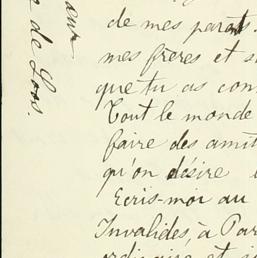 de mes parents
mes freres et s
que tu as con
Tout le monde
faire des amit
qu'on désire
Ecris-moi au
Invalides, à Par
ordinaire et si
de Loos.